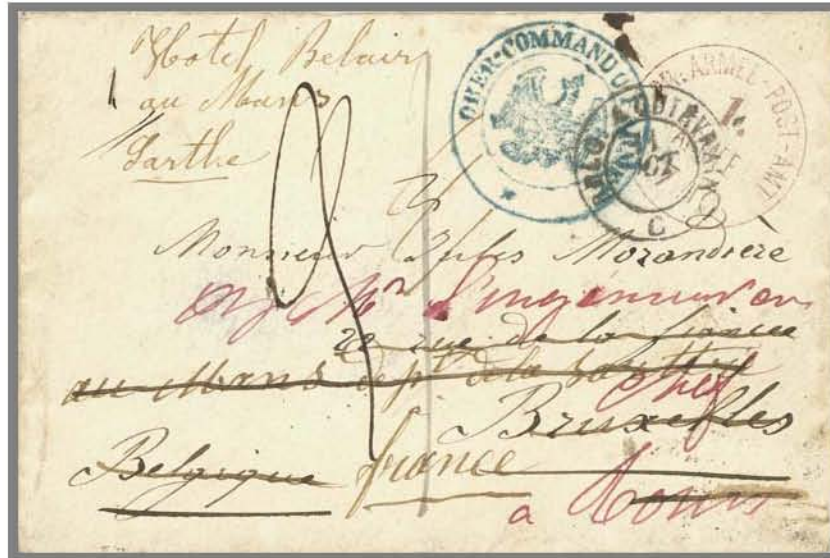 Hotel Belair
au Mans
Sarthe
OBER-COMMANDO
ARMEE-POST-AMT
Monsieur Jules Morandière
Mr l'ingénieur en
22 rue de la
au Mans dept de la Sarthe
chef
Bruxelles
Belgique france
a Tours